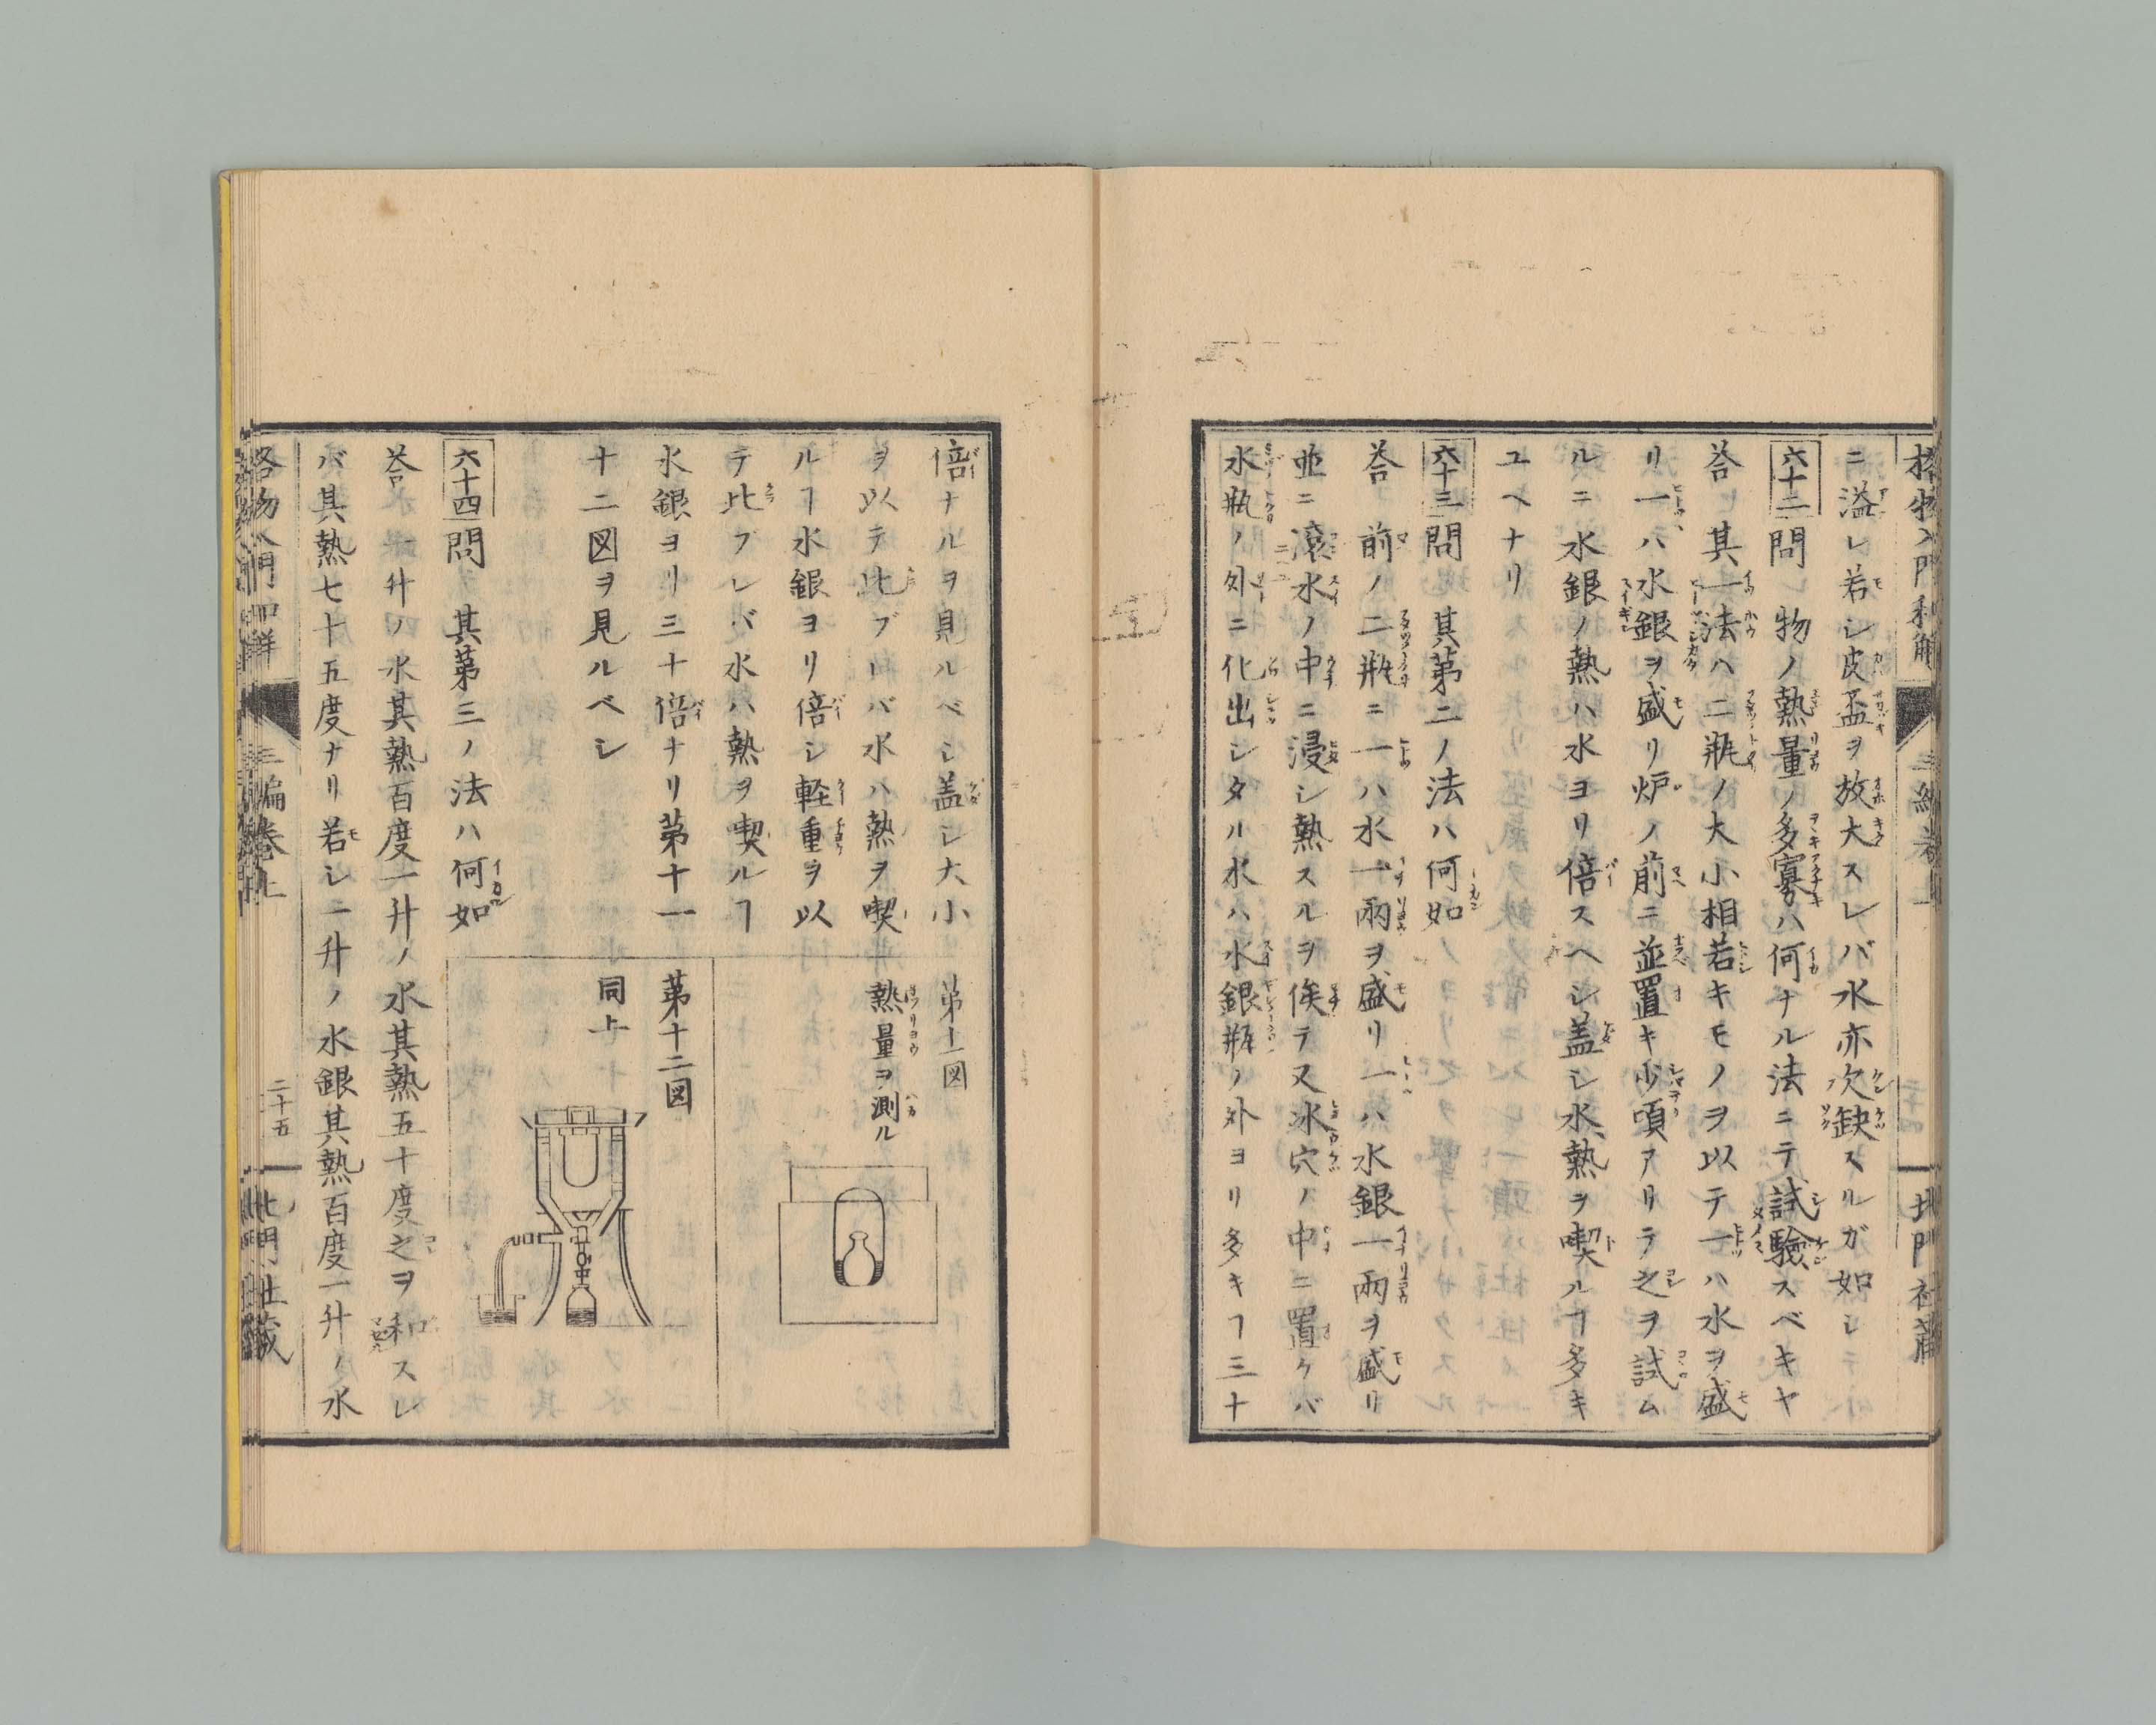 格物入門和解 三編巻上 北門社蔵
ニ溢レ若シ皮盃ヲ放大スレバ水亦次缺スルガ如シ
六十二問 物ノ熱量ノ多寡ハ何ナル法ニテ試驗スベキヤ
荅 其一法ハ二瓶ノ大小相若キモノヲ以テ一ハ水ヲ盛
リ一ハ水銀ヲ盛リ炉ノ前ニ並置キ少頃アリテ之ヲ試ム
ルニ水銀ノ熱ハ水ヨリ倍スヘシ盖シ水熱ヲ喫ルヿ多キ
ユヘナリ
六十三問 其第二ノ法ハ何如
荅 前ノ二瓶ニ一ハ水一兩ヲ盛リ一ハ水銀一兩ヲ盛リ
並ニ滾水ノ中ニ浸シ熱スルヲ俟テ又冰穴ノ中ニ置ケバ
水瓶ノ外ニ化出シタル水ハ水銀瓶ノ外ヨリ多キヿ三十
倍ナルヲ見ルベシ盖シ大小
ヲ以テ比ブレバ水ハ熱ヲ喫
ルヿ水銀ヨリ倍シ軽重ヲ以
テ比ブレバ水ハ熱ヲ喫ルヿ
水銀ヨリ三十倍ナリ第十一
十二図ヲ見ルベシ
第十一図
熱量ヲ測ル
第十二図
同上
六十四問 其第三ノ法ハ何如
荅 一升ノ水其熱百度一升ノ水其熱五十度之ヲ和スレ
バ其熱七十五度ナリ若シ一升ノ水銀其熱百度一升ノ水
格物入門和解 三編巻上 二十五 北門社蔵